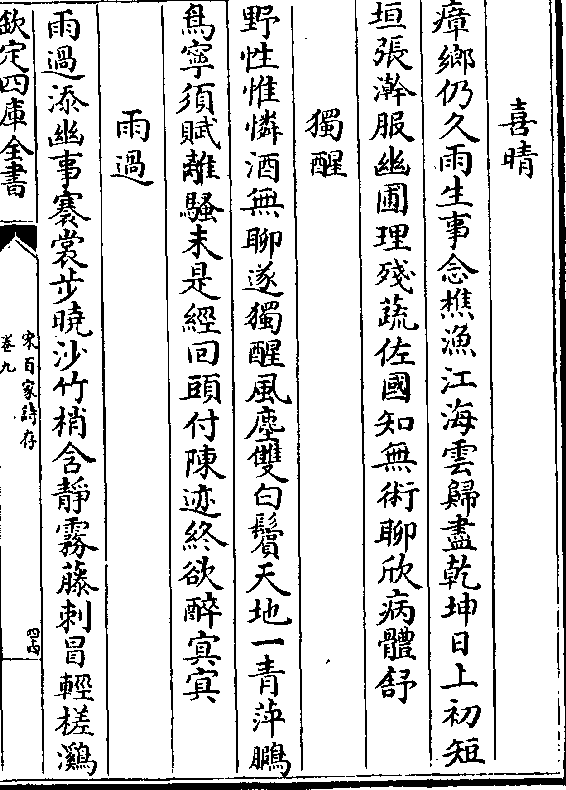 喜晴
瘴鄉仍久雨生事念樵漁江海雲歸盡乾坤日上初短
垣張澣服幽圃理殘蔬佐國知無術聊欣病體舒
獨醒
野性惟憐酒無聊遂獨醒風塵雙白鬢天地一青萍鵩
鳥寧須賦離騷未是經回頭付陳迹終欲醉冥冥
雨過
雨過添幽事褰裳步曉沙竹梢含靜霧藤刺冒輕槎鸂
欽定四庫全書
宋百家詩存
卷九
四四